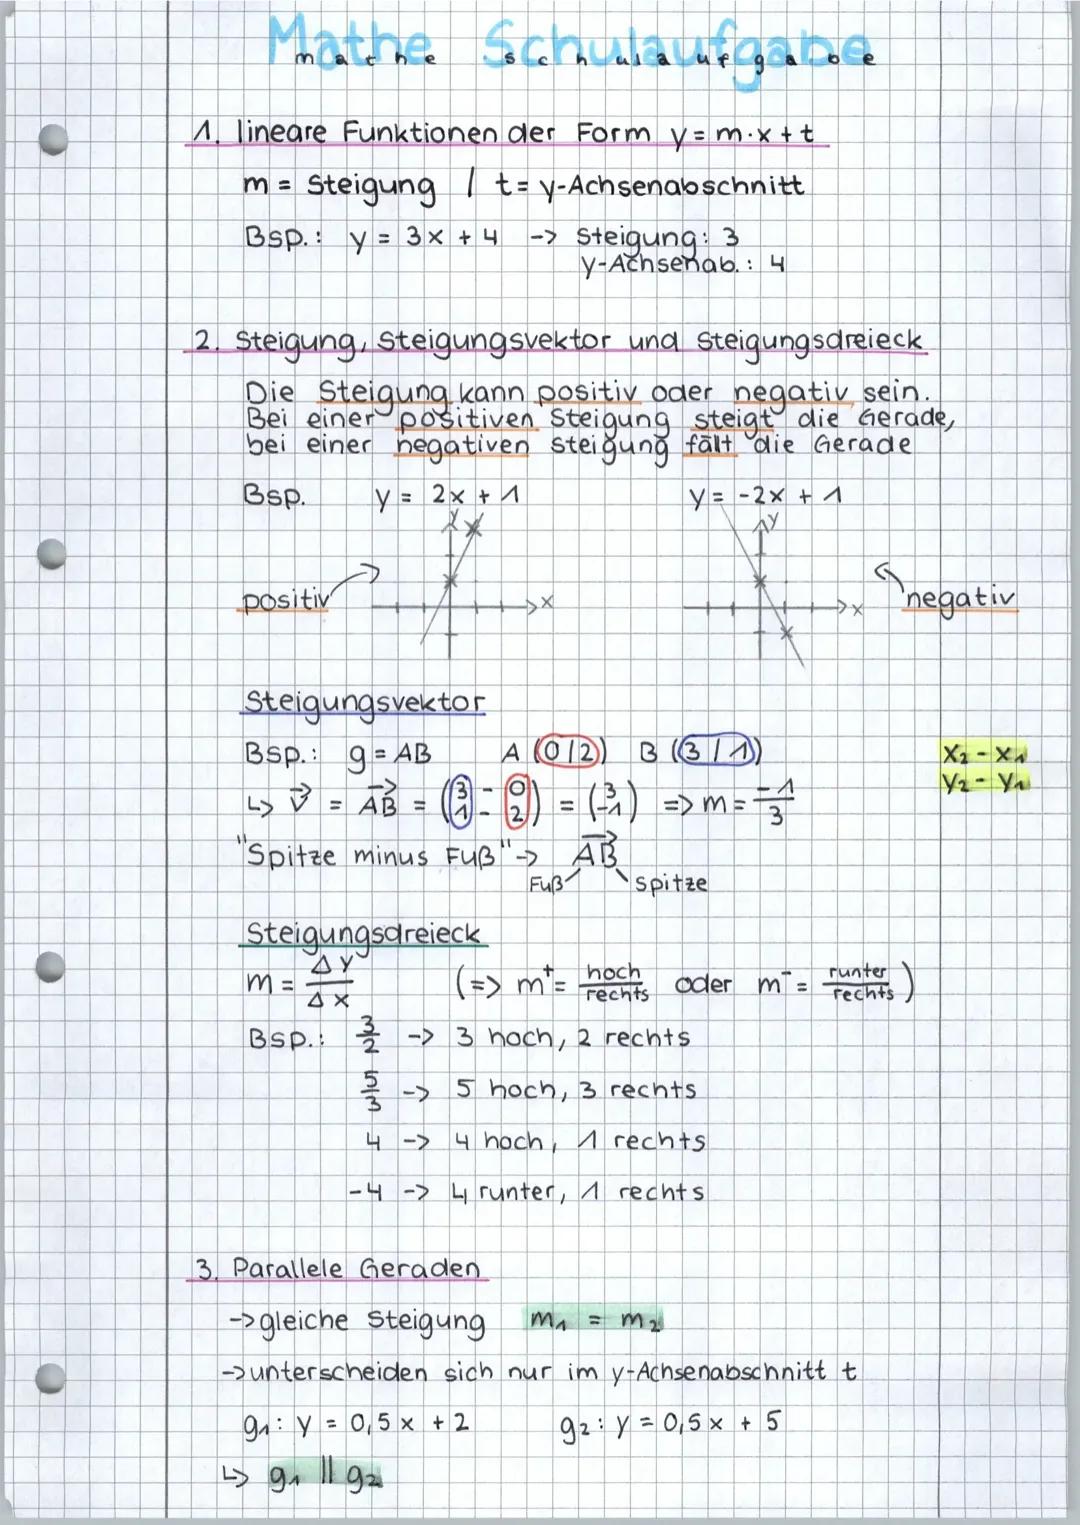 Mathe Schulaufgabe
mathe schulaufgabe
1. lineare Funktionen der Form y = m·x + t
m = Steigung / t = y-Achsenabschnitt
Bsp.: y = 3x + 4 -> Steigung: 3
y-Achsenab.: 4
2. Steigung, Steigungsvektor und Steigungsdreieck
Die Steigung kann positiv oder negativ sein.
Bei einer positiven Steigung steigt die Gerade,
bei einer negativen Steigung fält die Gerade
Bsp. y = 2x + 1 y = -2x + 1
y y
positiv x x negativ
Steigungsvektor
Bsp.: g = AB A (0|2) B (3|1) x₂ - x₁
y₂ - y₁
↳ v⃗ = AB⃗ = (3 - 0 / 1 - 2) = (3 / -1) => m = -1/3
"Spitze minus Fuß" -> AB⃗
Fuß Spitze
Steigungsdreieck
m = Δy/Δx (=> m⁺ = hoch/rechts oder m⁻ = runter/rechts)
Bsp.: 3/2 -> 3 hoch, 2 rechts
5/3 -> 5 hoch, 3 rechts
4 -> 4 hoch, 1 rechts
-4 -> 4 runter, 1 rechts
3. Parallele Geraden
-> gleiche Steigung m₁ = m₂
-> unterscheiden sich nur im y-Achsenabschnitt t
g₁: y = 0,5x + 2 g₂: y = 0,5x + 5
↳ g₁ || g₂